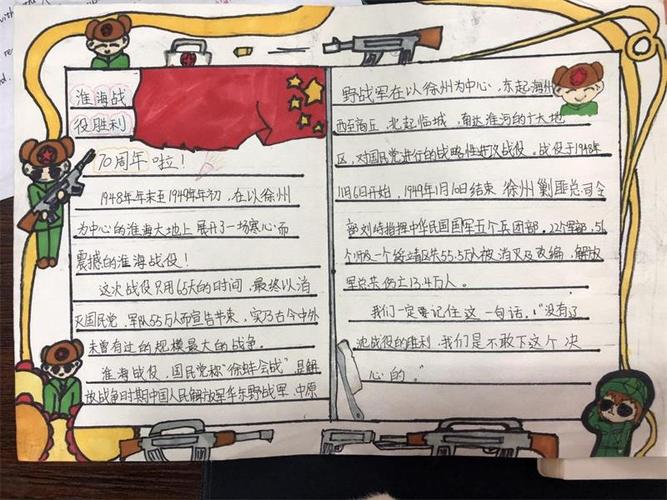 淮海战
役胜利
70周年啦！
1948年年末至1949年年初，在以徐州
为中心的淮海大地上展开了一场惊心而
震撼的淮海战役！
这次战役只用65天的时间，最终以消
灭国民党，军队55万人而宣告节束，实乃古今中外
未曾有过的规模最大的战争。
淮海战役，国民党称"徐蚌会战"是解
放战争时期中国人民解放军华东野战军、中原
野战军在以徐州为中心，东起海州
西至商丘，北起临城，南达淮河的广大地
区，对国民党进行的战略性进攻战役。战役于1948年
11月6日开始，1949年1月10日结束，徐州剿匪总司令
部刘峙指挥中华民国国军五个兵团部，22个军部，51
个师及一个绥靖区共55.5万人被消灭及改编，解放
军总共伤亡13.4万人。
我们一定要记住这一句话："没有辽
沈战役的胜利，我们是不敢下这个决
心的。"